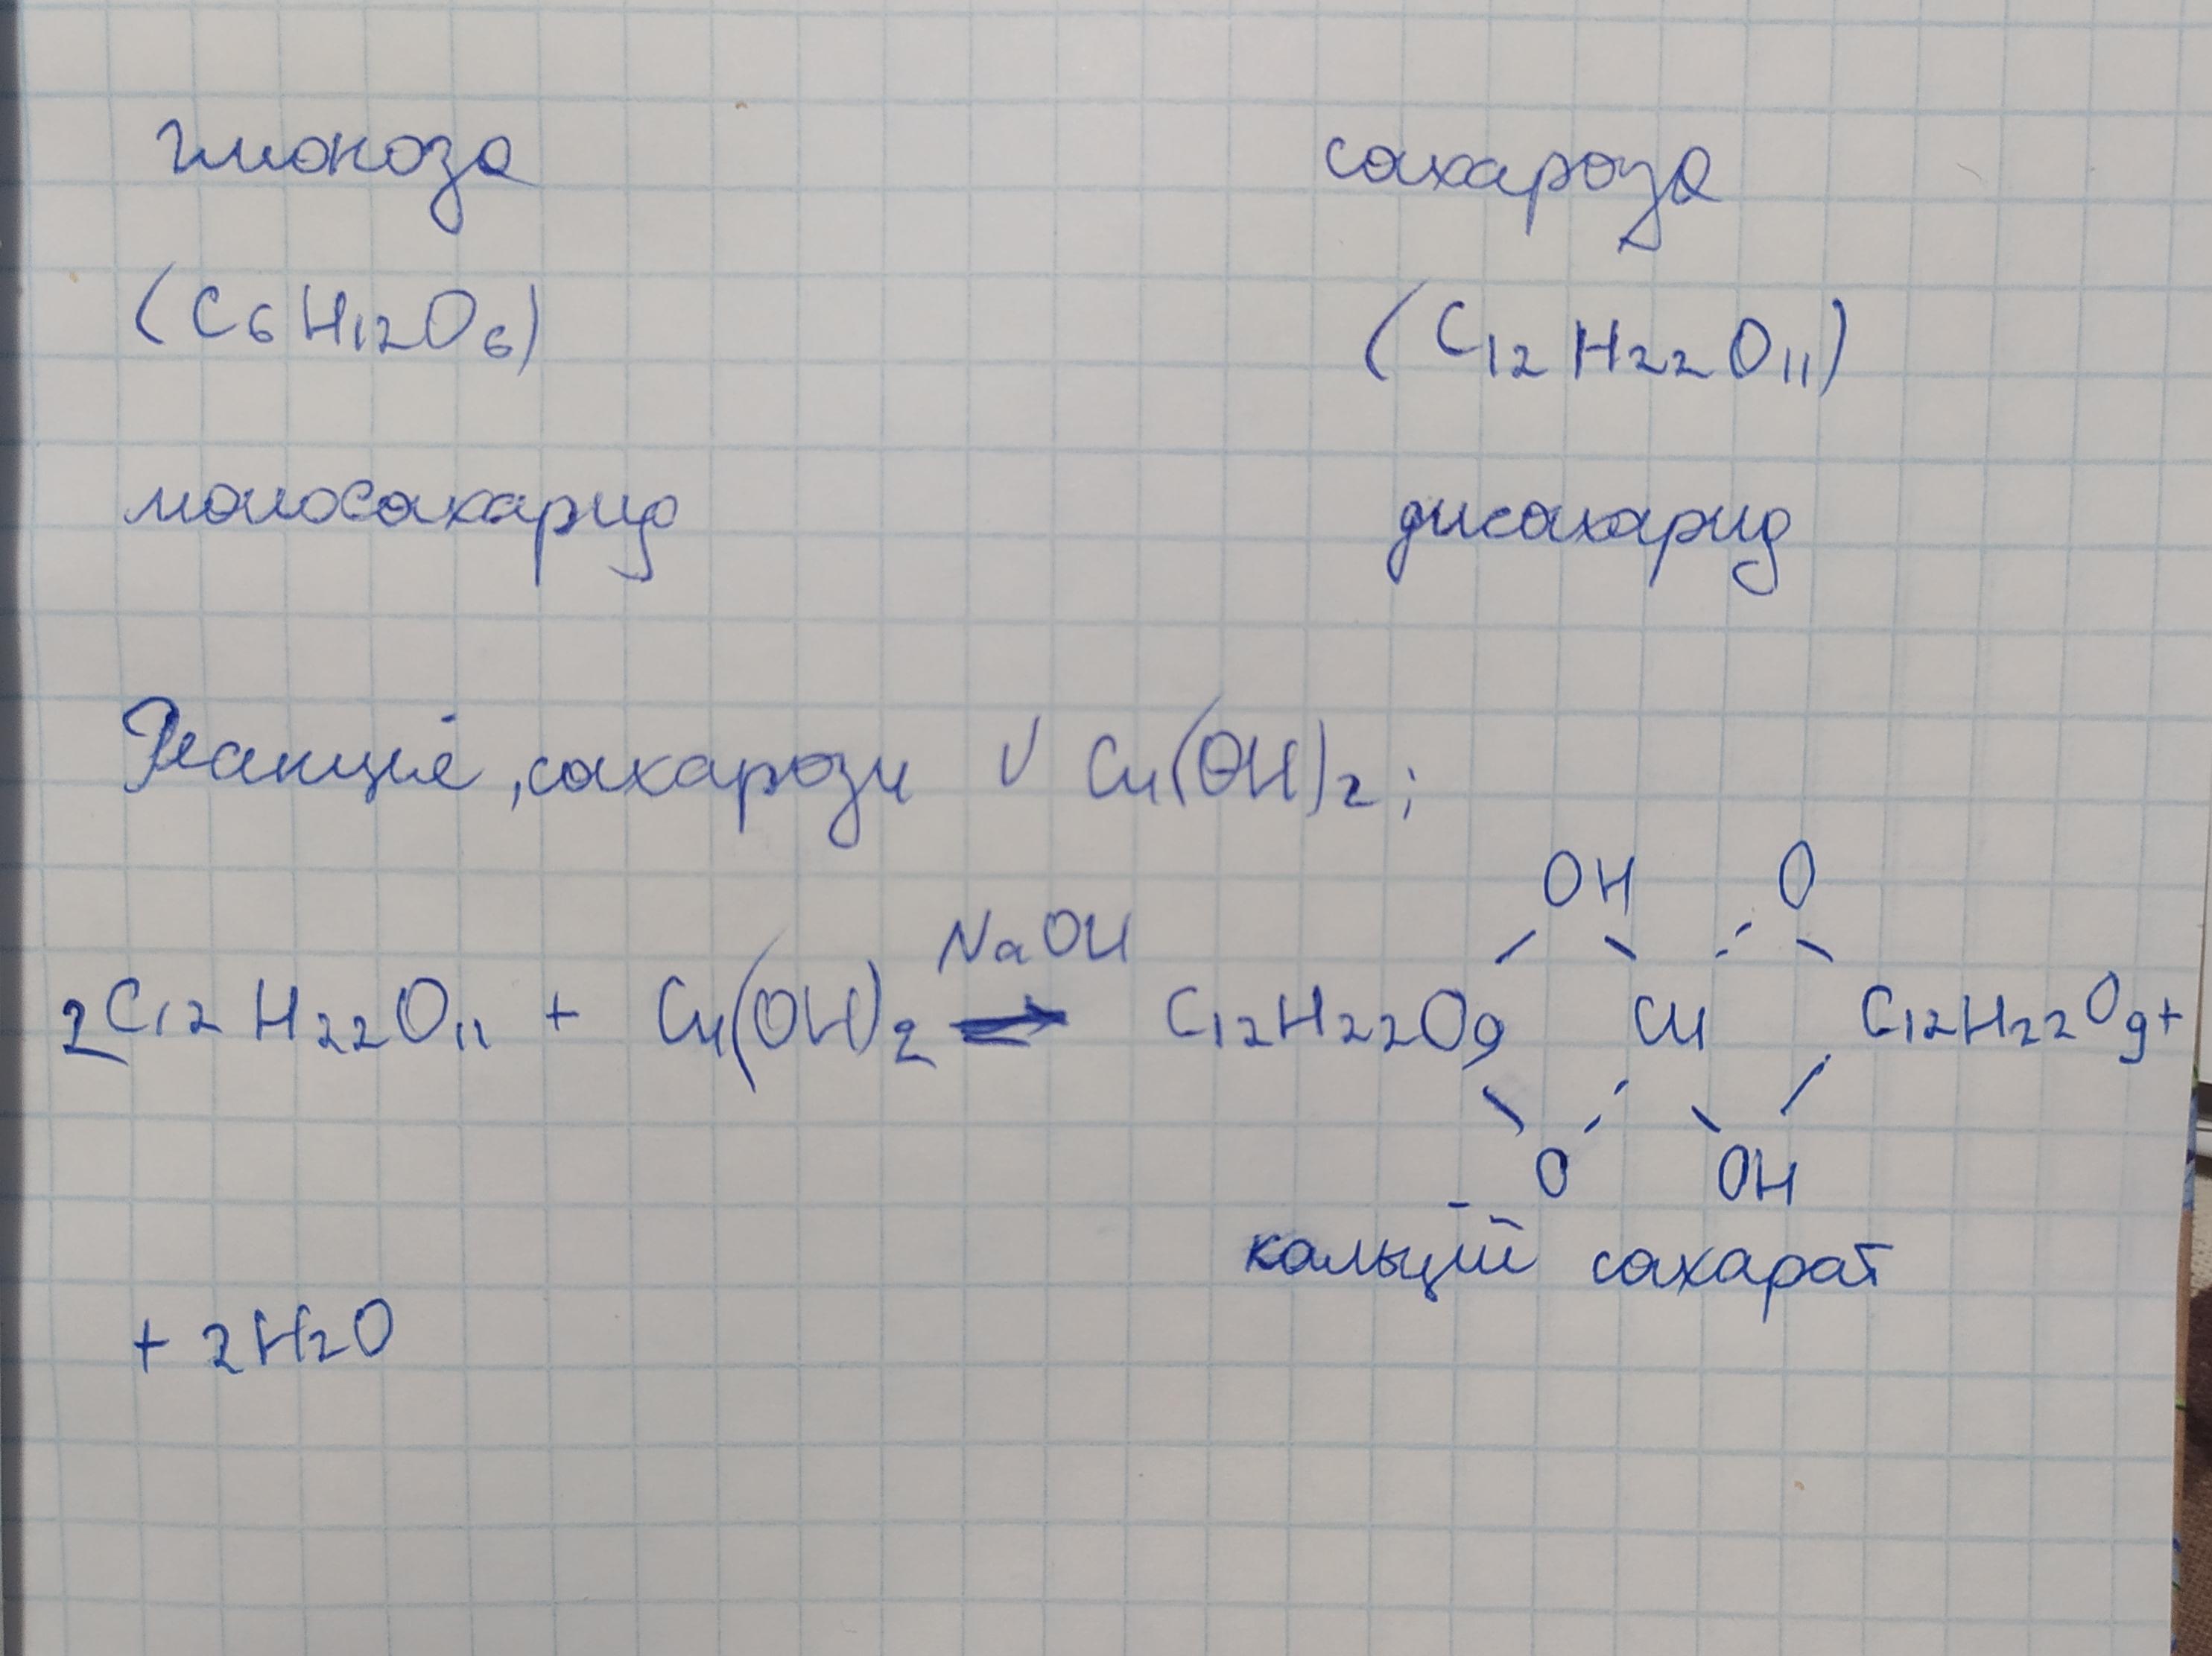 глюкоза сахароза
(C6H12O6) (C12H22O11)
моносахарид дисахарид
Реакція, сахарози V Cu(OH)2;
OH O
NaOH
2C12H22O11 + Cu(OH)2 → C12H22O9 Cu C12H22O9+
O OH
кальцій сахарат
+ 2H2O